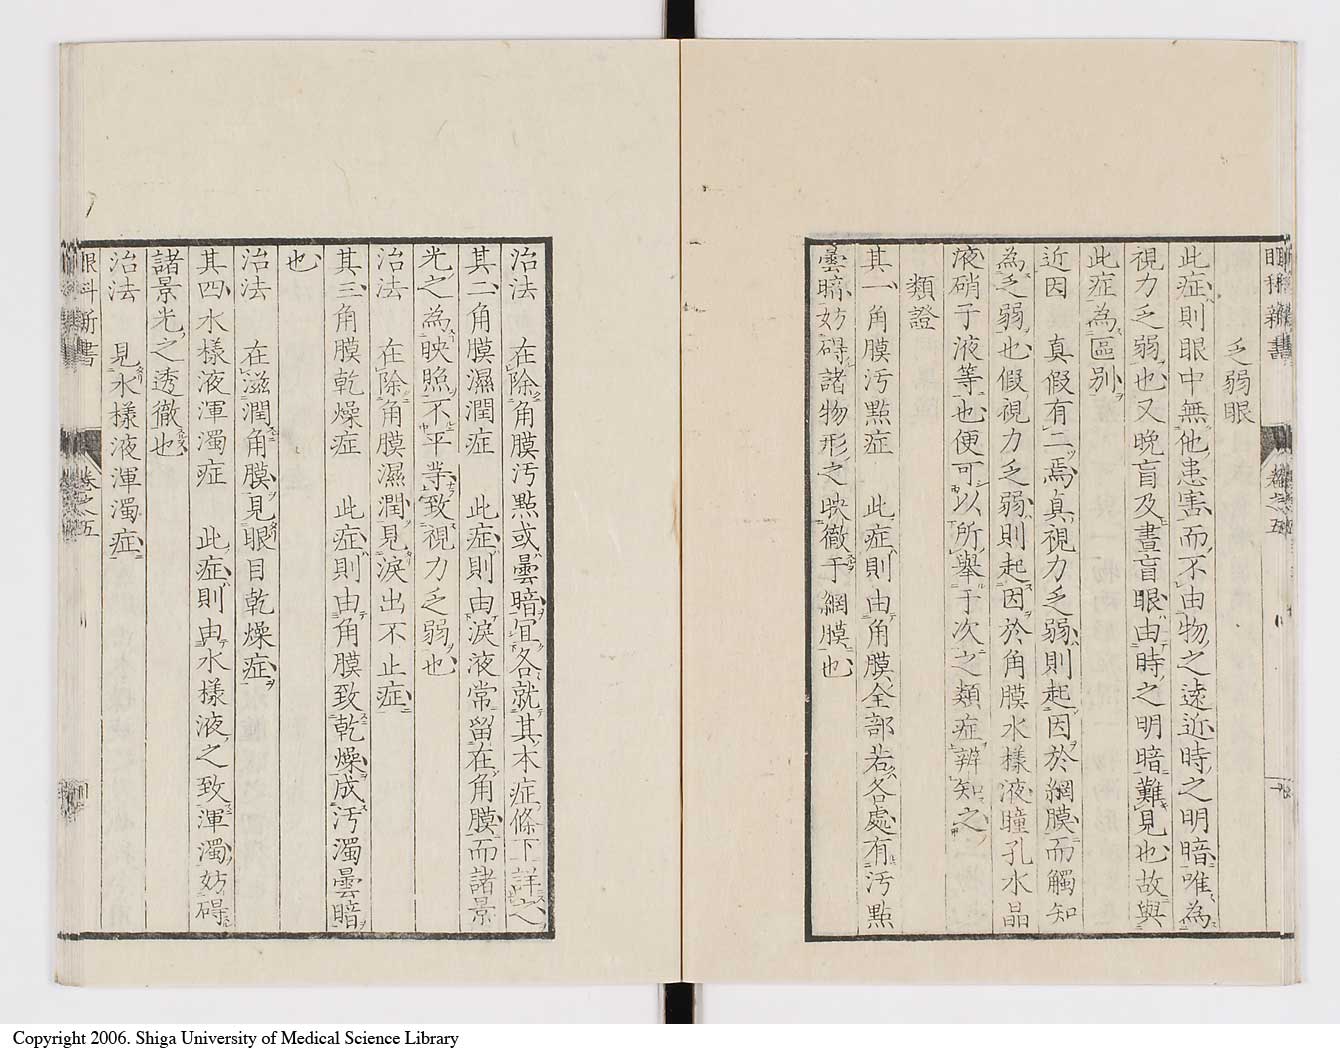 眼科新書
卷之五
乏弱眼
此症則眼中無他患害而不由物之遠近時之明暗唯為
視力乏弱也又晚盲及晝盲眼由時之明暗難見也故與
此症為區別
近因 真假有二焉真視力乏弱則起因於網膜而觸知
為乏弱也假視力乏弱則起因於角膜水樣液瞳孔水晶
液硝子液等也便可以所擧于次之類症辨知之
類證
其一角膜汚點症 此症則由角膜全部若各處有汚點
曇暗妨碍諸物形之映徹于網膜也
治法 在除角膜汚點或曇暗宜各就其本症條下詳之
其二角膜濕潤症 此症則由淚液常留在角膜而諸景
光之為映照不平等致視力乏弱也
治法 在除角膜濕潤見淚出不止症
其三角膜乾燥症 此症則由角膜致乾燥成汚濁曇暗
也
治法 在滋潤角膜見眼目乾燥症
其四水樣液渾濁症 此症則由水樣液之致渾濁妨碍
諸景光之透徹也
治法 見水樣液渾濁症
眼科新書
卷之五
Copyright 2006. Shiga University of Medical Science Library